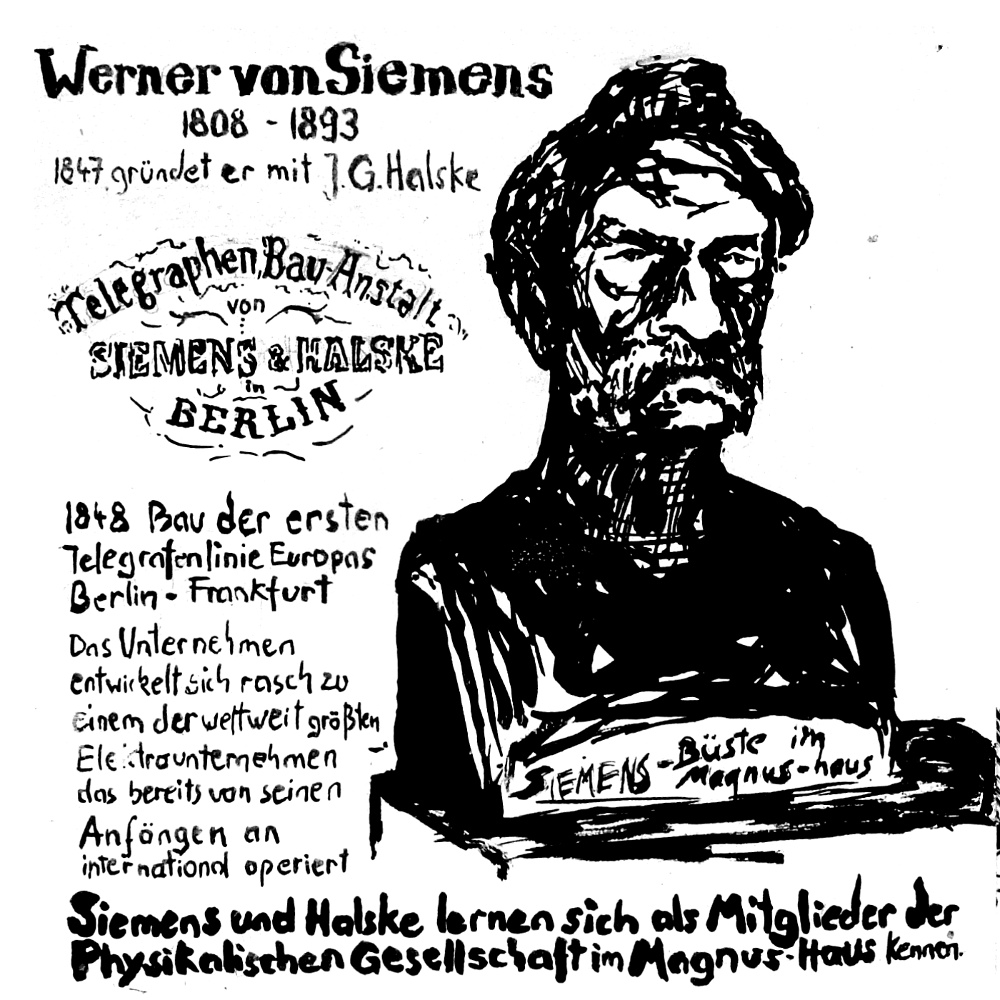 Werner von Siemens
1808 - 1893
1847 gründet er mit J.G. Halske
Telegraphen, Bau-Anstalt
von
SIEMENS & HALSKE
in
BERLIN
1848 Bau der ersten
Telegrafenlinie Europas
Berlin - Frankfurt
Das Unternehmen
entwickelt sich rasch zu
einem der weltweit größten
Elektrounternehmen
das bereits von seinen
Anfängen an
international operiert
SIEMENS - Büste im
Magnus-haus
Siemens und Halske lernen sich als Mitglieder der
Physikalischen Gesellschaft im Magnus-Haus kennen.